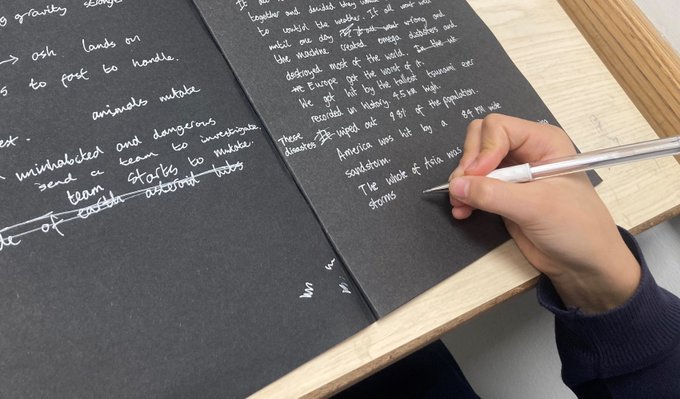 g gravity stronger
→ ash lands on
s to fast to handle.
animals mutate
est.
uninhabited and dangerous
send a team to investigate.
team starts to mutate
de of earth asteroid hits
It al
together and decided they would
to control the weather. If all went well
until one day it all went wrong and
the machine created omega disasters and
destroyed most of the world. In the wk
Europe got the worst of it.
We got hit by the tallest tsunami ever
recorded in history. 4.5 km high.
These disasters wiped out 98% of the population.
America was hit by a 84 km wide
sandstorm.
The whole of Asia was
storms